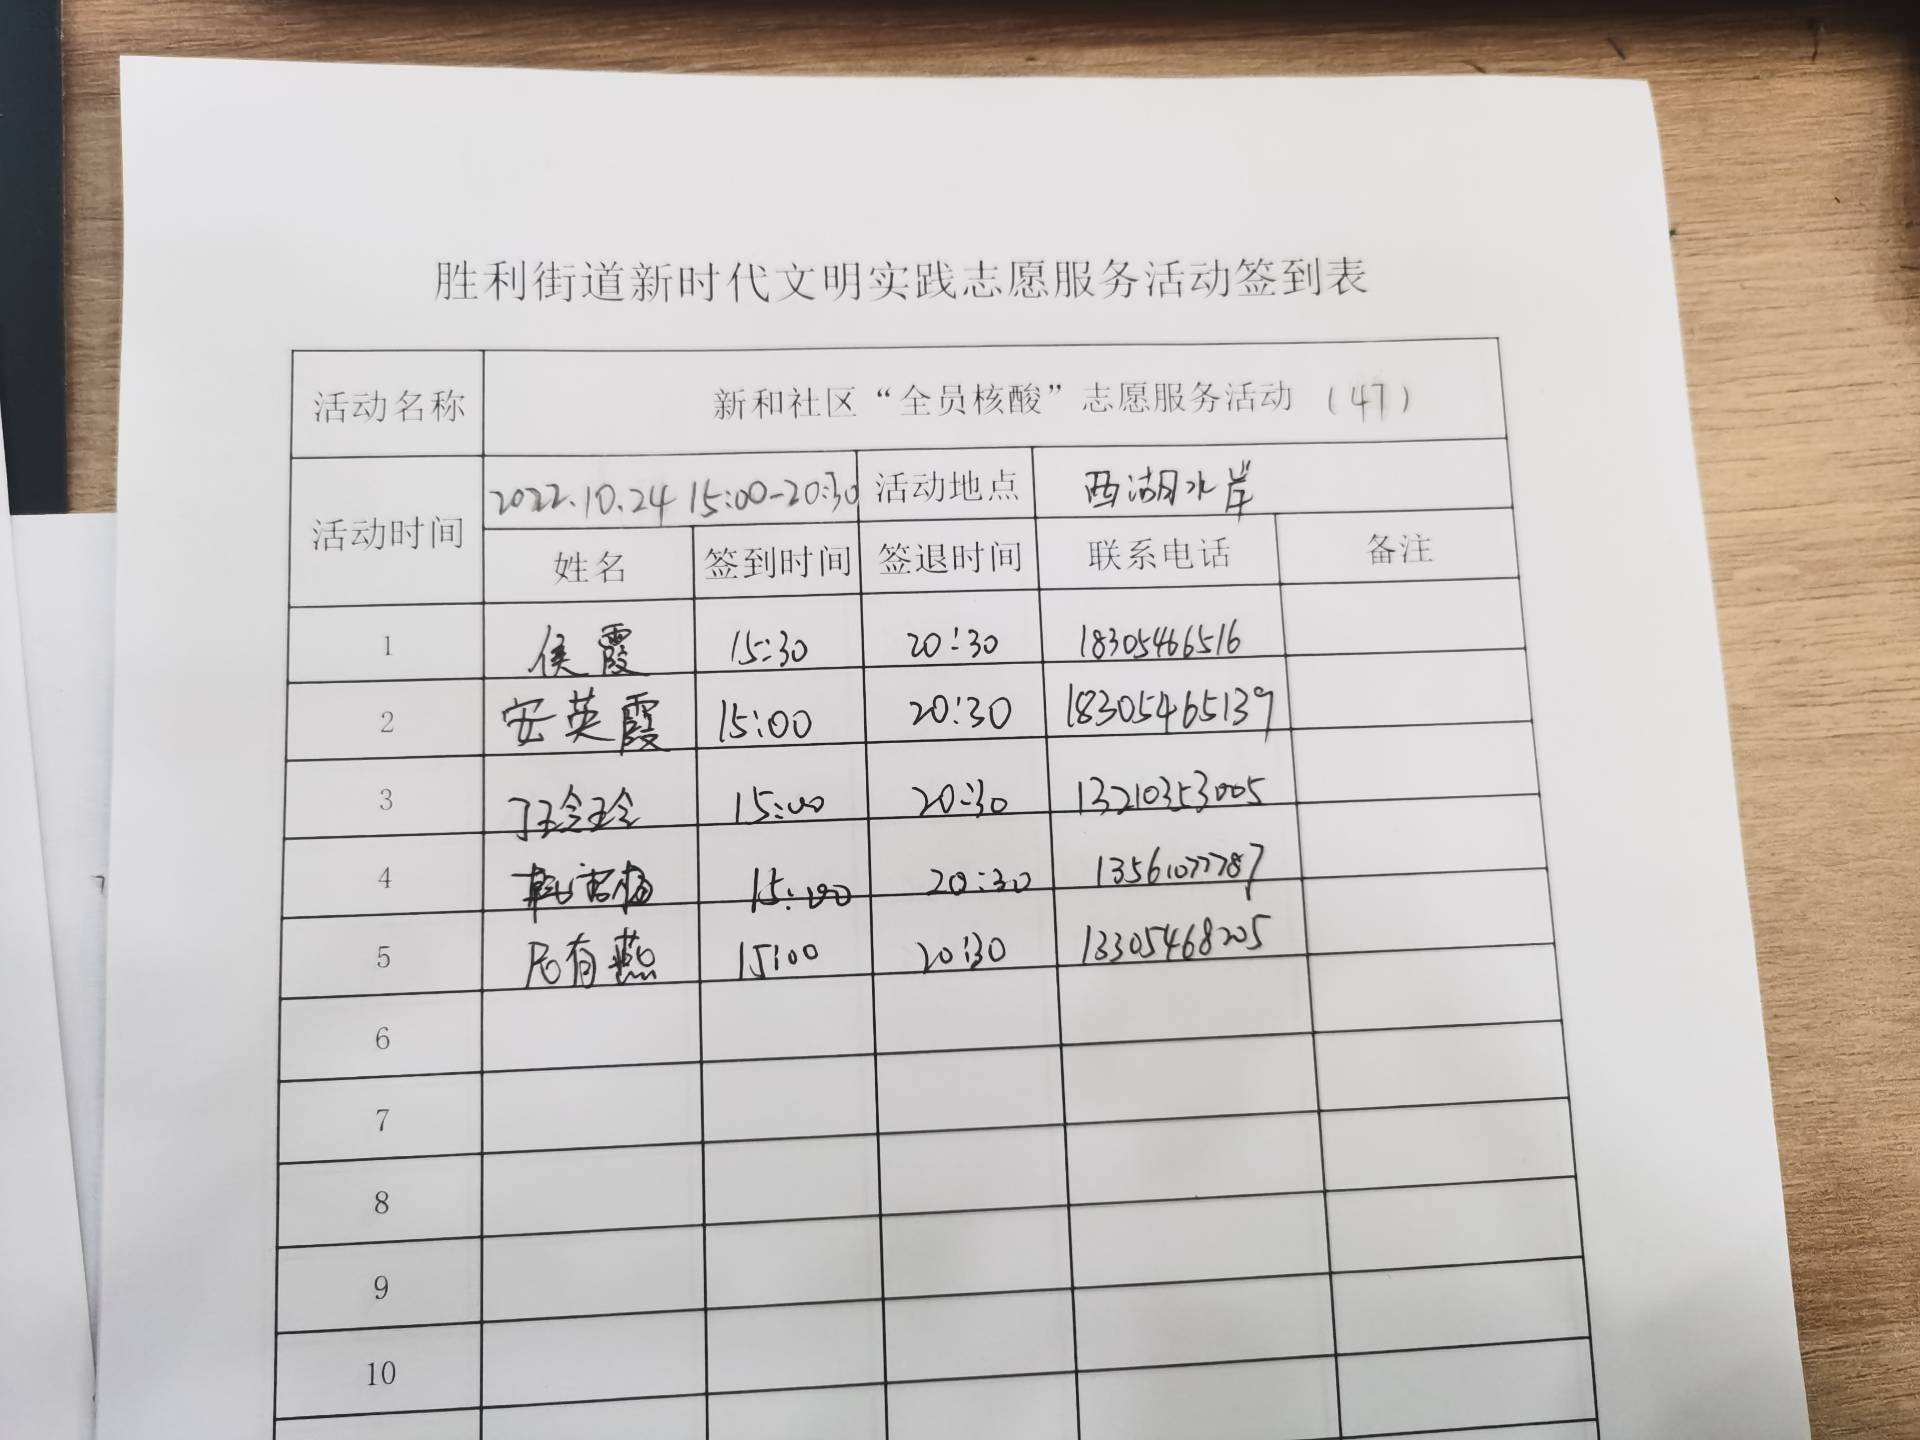 胜利街道新时代文明实践志愿服务活动签到表
活动名称 新和社区“全员核酸”志愿服务活动（47）
活动时间 2022.10.24 15:00-20:30 活动地点 西湖水岸
姓名 签到时间 签退时间 联系电话 备注
1 侯霞 15:30 20:30 18305466516
2 安英霞 15:00 20:30 18305465139
3 丁玲玲 15:00 20:30 13210353005
4 15:00 20:30 13561077787
5 有燕 15:00 20:30 13305468205
6
7
8
9
10